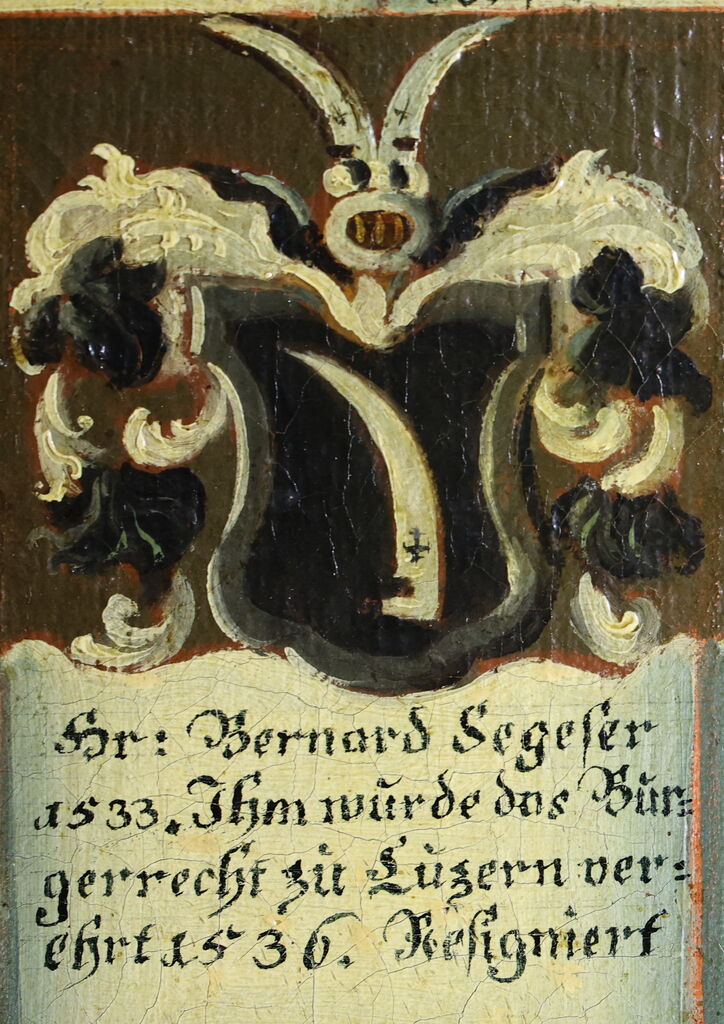 Hr: Bernard Segeser
1533. Ihm wŭrde das Bŭr=
gerrecht zŭ Lŭzern ver=
ehrt 1536. Resigniert